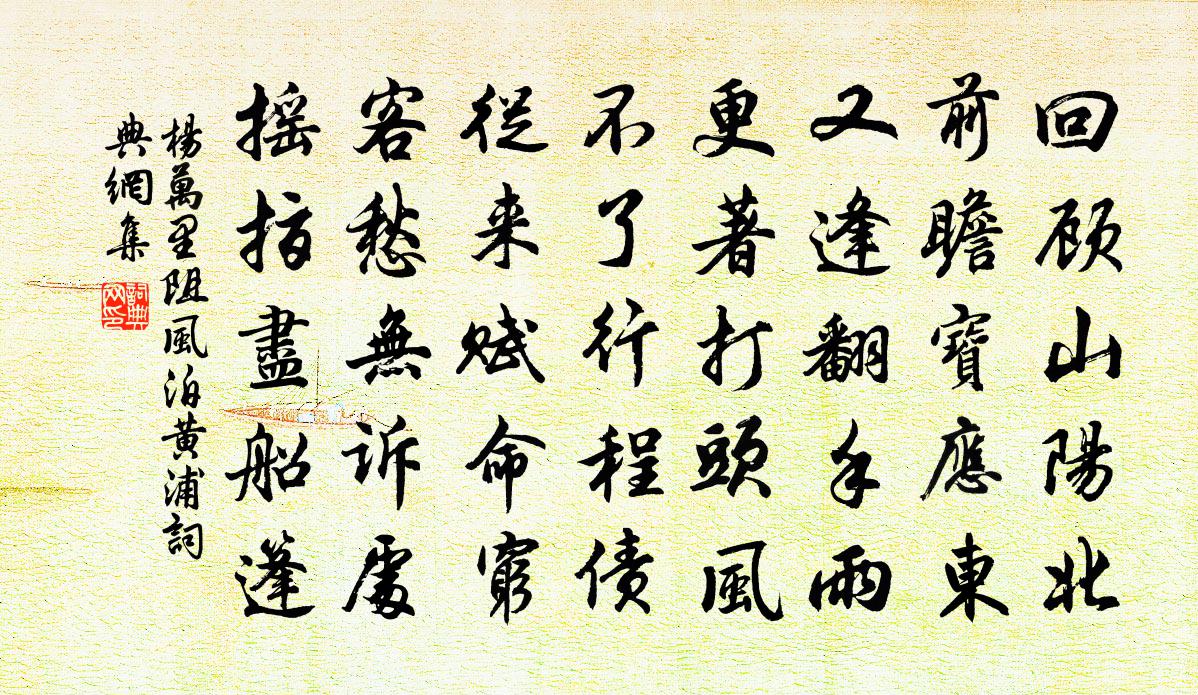 回顾山陽北
前瞻寶應東
又逢翻手雨
更著打頭風
不了行程债
從来赋命窮
客愁無訴處
摇指盡船篷
楊萬里阻風泊黄浦詞
典網集
詞典
网印